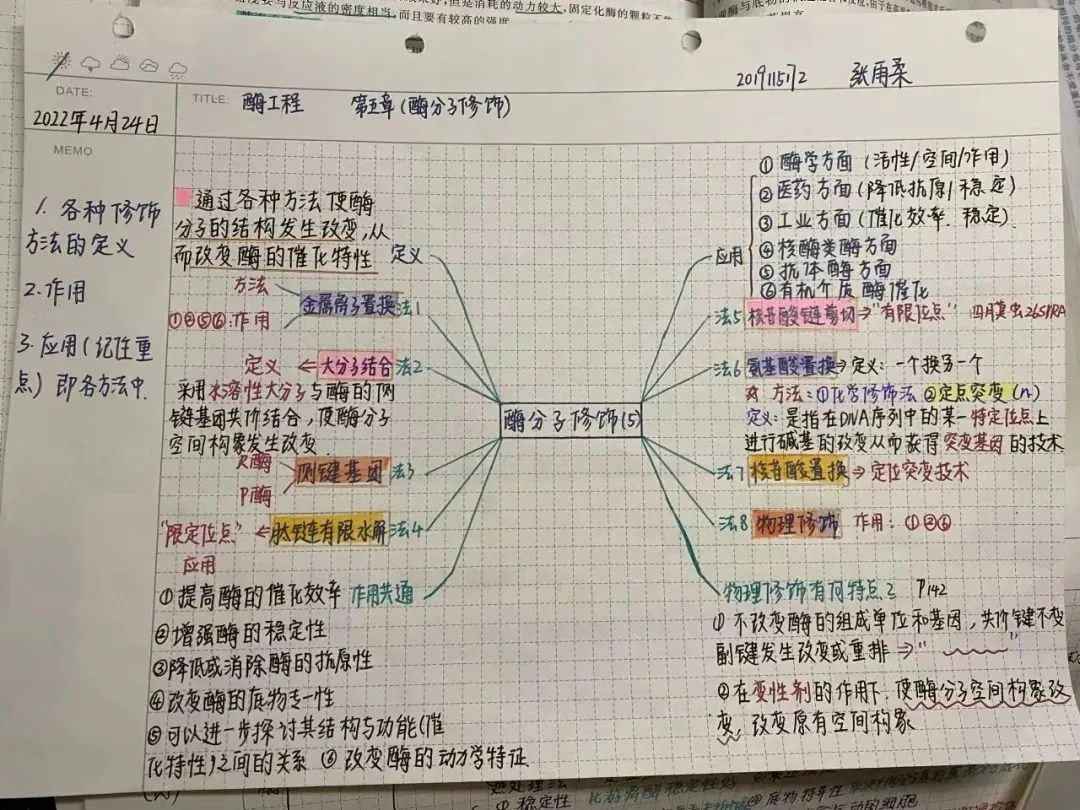 度要与反应液的密度相当,而且要有较高的强度
2019115172 张雨柔
DATE:
2022年4月24日
TITLE: 酶工程 第五章(酶分子修饰)
MEMO
1. 各种修饰
方法的定义
2. 作用
3. 应用(纪性重
点) 即各方法中.
通过各种方法使酶
分子的结构发生改变,从
而改变酶的催化特性 定义
方法
金属离子置换 法1
①②⑤⑥:作用
定义 ← 大分子结合 法2
采用水溶性大分子与酶的侧
键基团共价结合,使酶分子
空间构象发生改变.
侧键基团 法3
P酶
"限定位点" ← 肽链有限水解 法4
应用
①提高酶的催化效率 作用共通
②增强酶的稳定性
③降低或消除酶的抗原性
④改变酶的底物专一性
⑤可以进一步探讨其结构与功能(催
化特性)之间的关系 ⑥ 改变酶的动力学特征
酶分子修饰(5)
应用
① 酶学方面 (活性/空间/作用)
② 医药方面 (降低抗原/稳定)
③ 工业方面 (催化效率.稳定)
④ 核酶类酶方面
⑤ 抗体酶方面
⑥ 有机介质酶催化
法5 核苷酸链剪切 ⇒ "有限位点" 四月莫虫26S rRA
法6 氨基酸置换 ⇒ 定义: 一个换另一个
方法: ①化学修饰法 ②定点突变(n)
定义: 是指在DNA序列中的某一特定位点上
进行碱基的改变从而获得突变基因的技术
法7 核苷酸置换 ⇒ 定位突变技术
法8 物理修饰 作用: ①②⑥
物理修饰有何特点? P142
① 不改变酶的组成单位和基团, 共价键不变
副键发生改变或重排 ⇒ " "
② 在变性剂的作用下, 使酶分子空间构象改
变, 改变原有空间构象